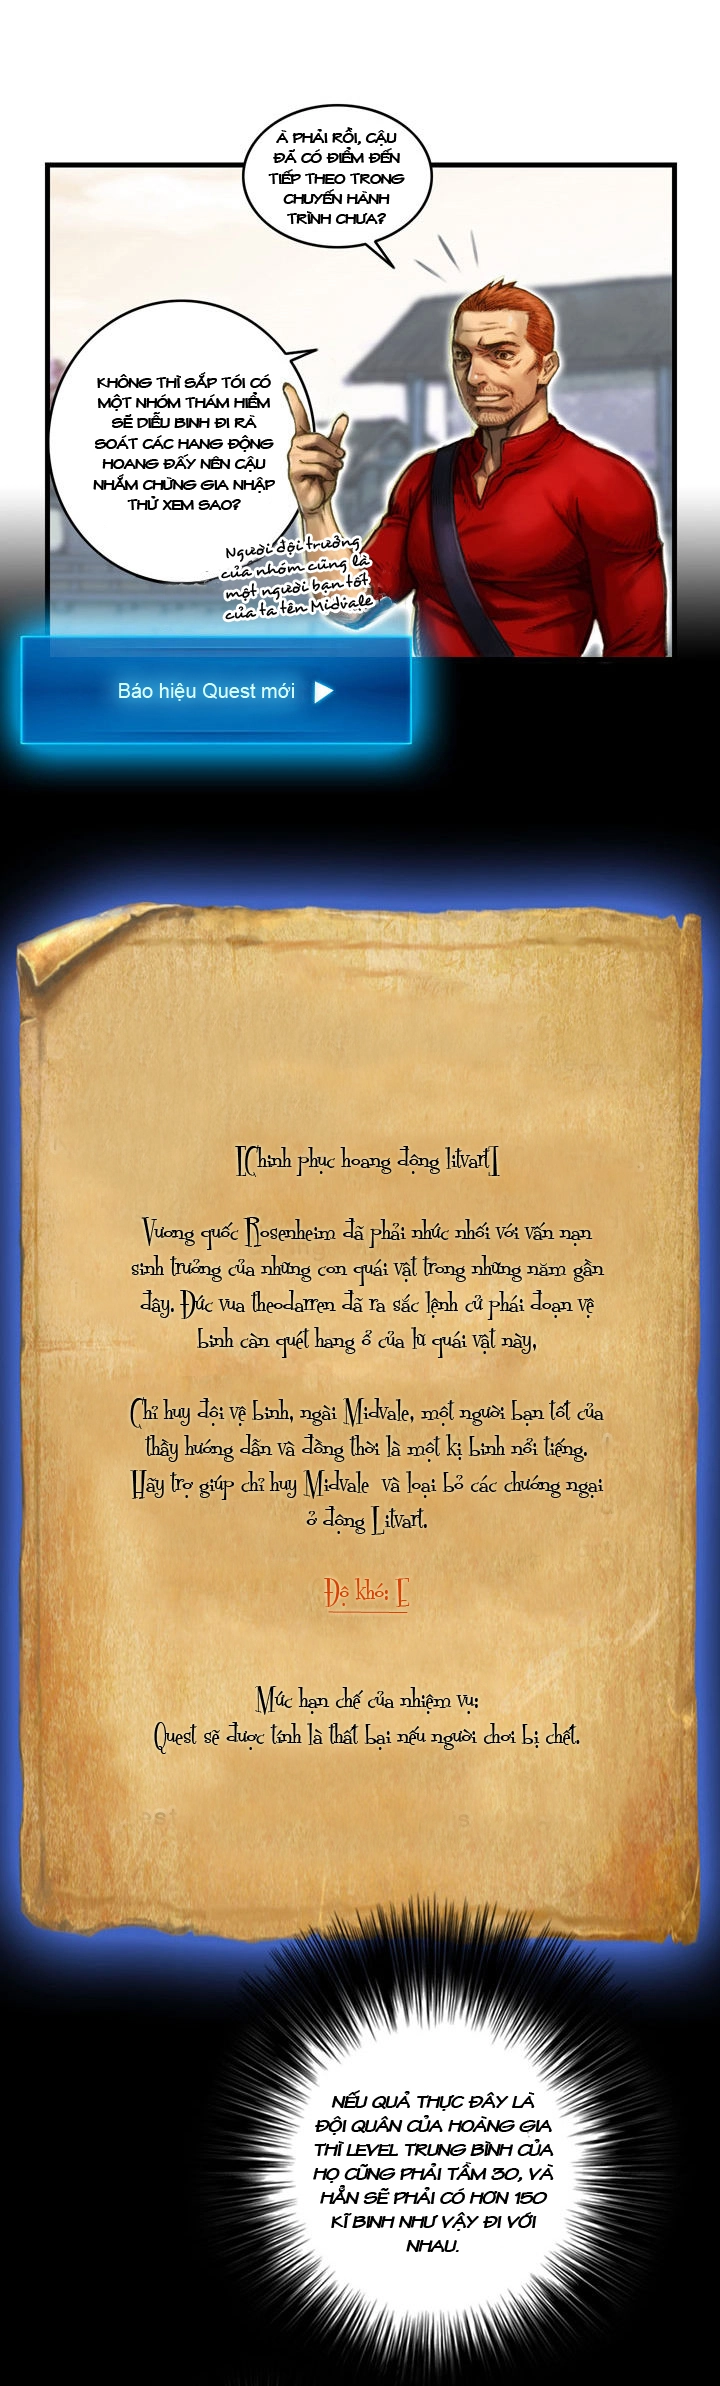 À PHẢI RỒI, CẬU
ĐÃ CÓ ĐIỂM ĐẾN
TIẾP THEO TRONG
CHUYẾN HÀNH
TRÌNH CHƯA?
KHÔNG THÌ SẮP TÓI CÓ
MỘT NHÓM THÁM HIỂM
SẼ DIỄU BINH ĐI RÀ
SOÁT CÁC HANG ĐỘNG
HOANG ĐẤY NÊN CẬU
NHẮM CHỪNG GIA NHẬP
THỬ XEM SAO?
Người đội trưởng
của nhóm cũng là
một người bạn tốt
của ta tên Midvale
Báo hiệu Quest mới
[Chinh phục hoang động litvart]
Vương quốc Rosenheim đã phải nhức nhối với vấn nạn
sinh trưởng của những con quái vật trong những năm gần
đây. Đức vua theodarren đã ra sắc lệnh cử phái đoạn vệ
binh càn quét hang ổ của lũ quái vật này,
Chỉ huy đội vệ binh, ngài Midvale, một người bạn tốt của
thầy hướng dẫn và đồng thời là một kị binh nổi tiếng.
Hãy trợ giúp chỉ huy Midvale và loại bỏ các chướng ngại
ở động Litvart.
Độ khó: E
Mức hạn chế của nhiệm vụ:
Quest sẽ được tính là thất bại nếu người chơi bị chết.
NẾU QUẢ THỰC ĐÂY LÀ
ĐỘI QUÂN CỦA HOÀNG GIA
THÌ LEVEL TRUNG BÌNH CỦA
HỌ CŨNG PHẢI TẦM 30, VÀ
HẲN SẼ PHẢI CÓ HƠN 150
KĨ BINH NHƯ VẬY ĐI VỚI
NHAU.